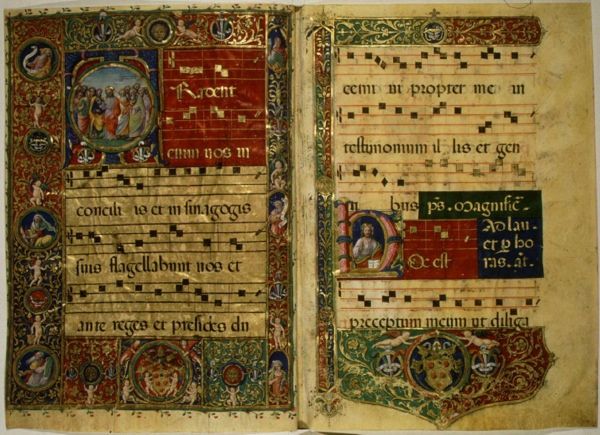 Tradent
enim uos in
concili is et in sinagogis
suis flagellabunt uos et
ante reges et presides du
cemi ni propter me in
testimonium il lis et gen
ti bus ps. Magnific̄.
Ad lau-
et p ho-
Hoc est ras. āt.
preceptum meum ut diliga